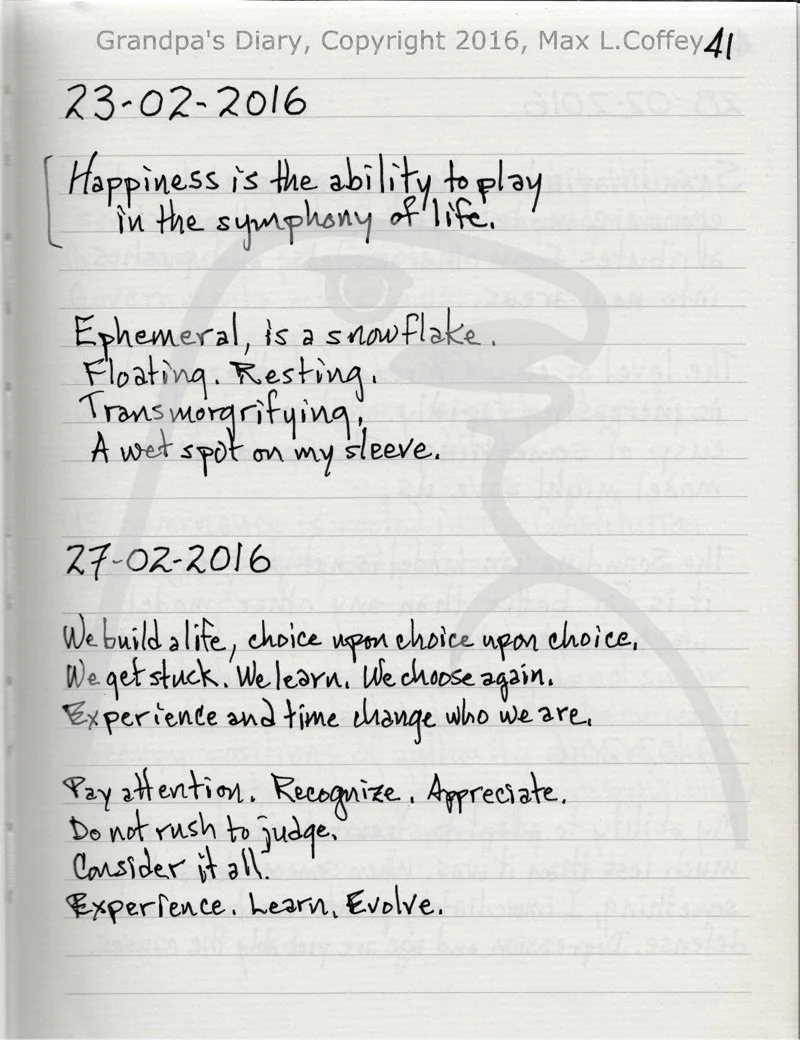 Grandpa's Diary, Copyright 2016, Max L.Coffey 41
23-02-2016
Happiness is the ability to play
in the symphony of life.
Ephemeral, is a snowflake.
Floating. Resting.
Transmorgrifying.
A wet spot on my sleeve.
27-02-2016
We build a life, choice upon choice upon choice.
We get stuck. We learn. We choose again.
Experience and time change who we are.
Pay attention. Recognize. Appreciate.
Do not rush to judge.
Consider it all.
Experience. Learn. Evolve.